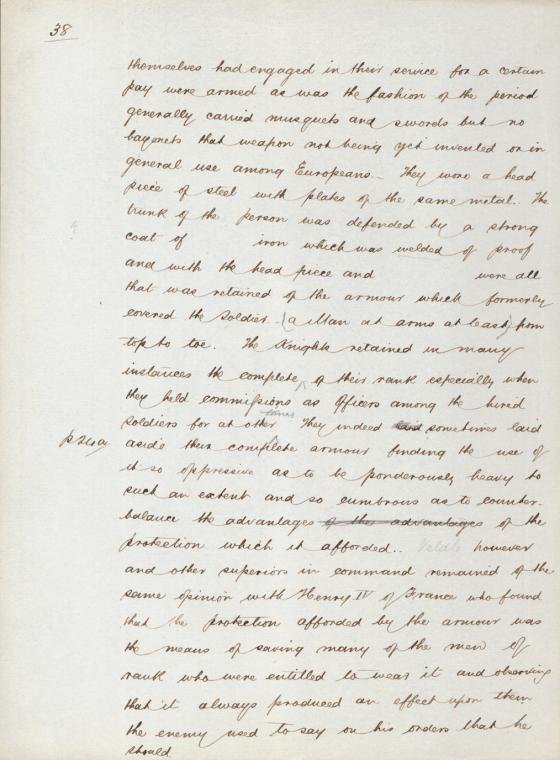 38
themselves had engaged in their service for a certain
pay were armed as was the fashion of the period
generally carried musquets and swords but no
bayonets that weapon not being yet invented or in
general use among Europeans - They wore a head
piece of steel with plates of the same metal.. The
trunk of the person was defended by a strong
coat of iron which was welded of proof
and with the head piece and were all
that was retained of the armour which formerly
covered the Soldier - (a Man at arms at least) from
top to toe. The Knights retained in many
instances the complete ^ of their rank especially when
they held commissions as Officers among the hired
soldiers for at other times They indeed sometimes laid
aside their complete armour finding the use of
it so oppressive as to be ponderously heavy to
such an extent and so cumbrous as to counter-
balance the advantages of the advantages of the
protection which it afforded.. however
and other superiors in command remained of the
same opinion with Henry IV of France who found
that the protection afforded by the armour was
the means of saving many of the men of
rank who were entitled to wear it and observing
that it always produced an effect upon them
the enemy used to say on his orders that he
should